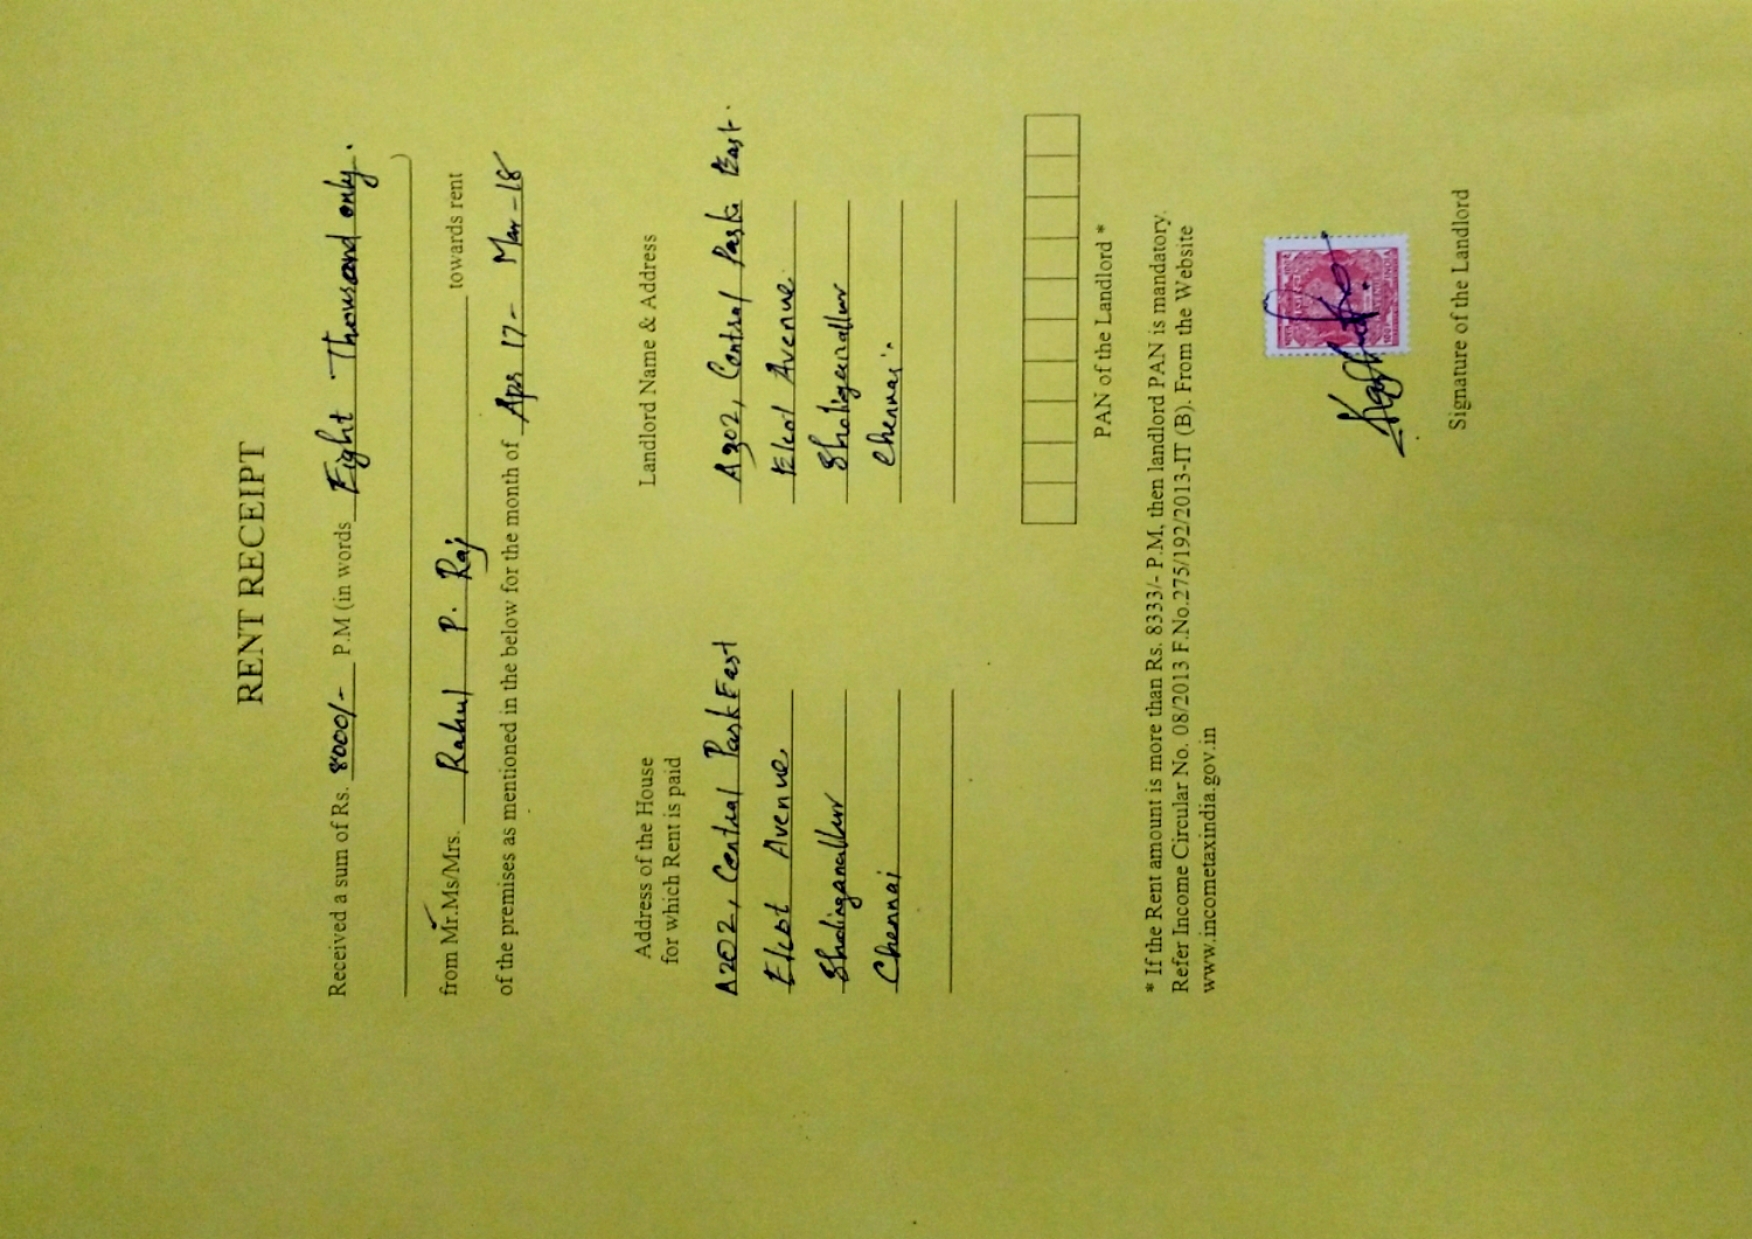 RENT RECEIPT
Received a sum of Rs. 8000/- P.M (in words Eight Thousand only.
)
from Mr.Ms/Mrs. Rahul P. Raj towards rent
of the premises as mentioned in the below for the month of Apr 17 - Mar - 18
Address of the House
for which Rent is paid
A202, Central Park East
Avenue
Chennai
Landlord Name & Address
Central Park East.
Avenue
Chennai.
PAN of the Landlord *
* If the Rent amount is more than Rs. 8333/- P.M, then landlord PAN is mandatory.
Refer Income Circular No. 08/2013 F.No.275/192/2013-IT (B). From the Website
www.incometaxindia.gov.in
Signature of the Landlord